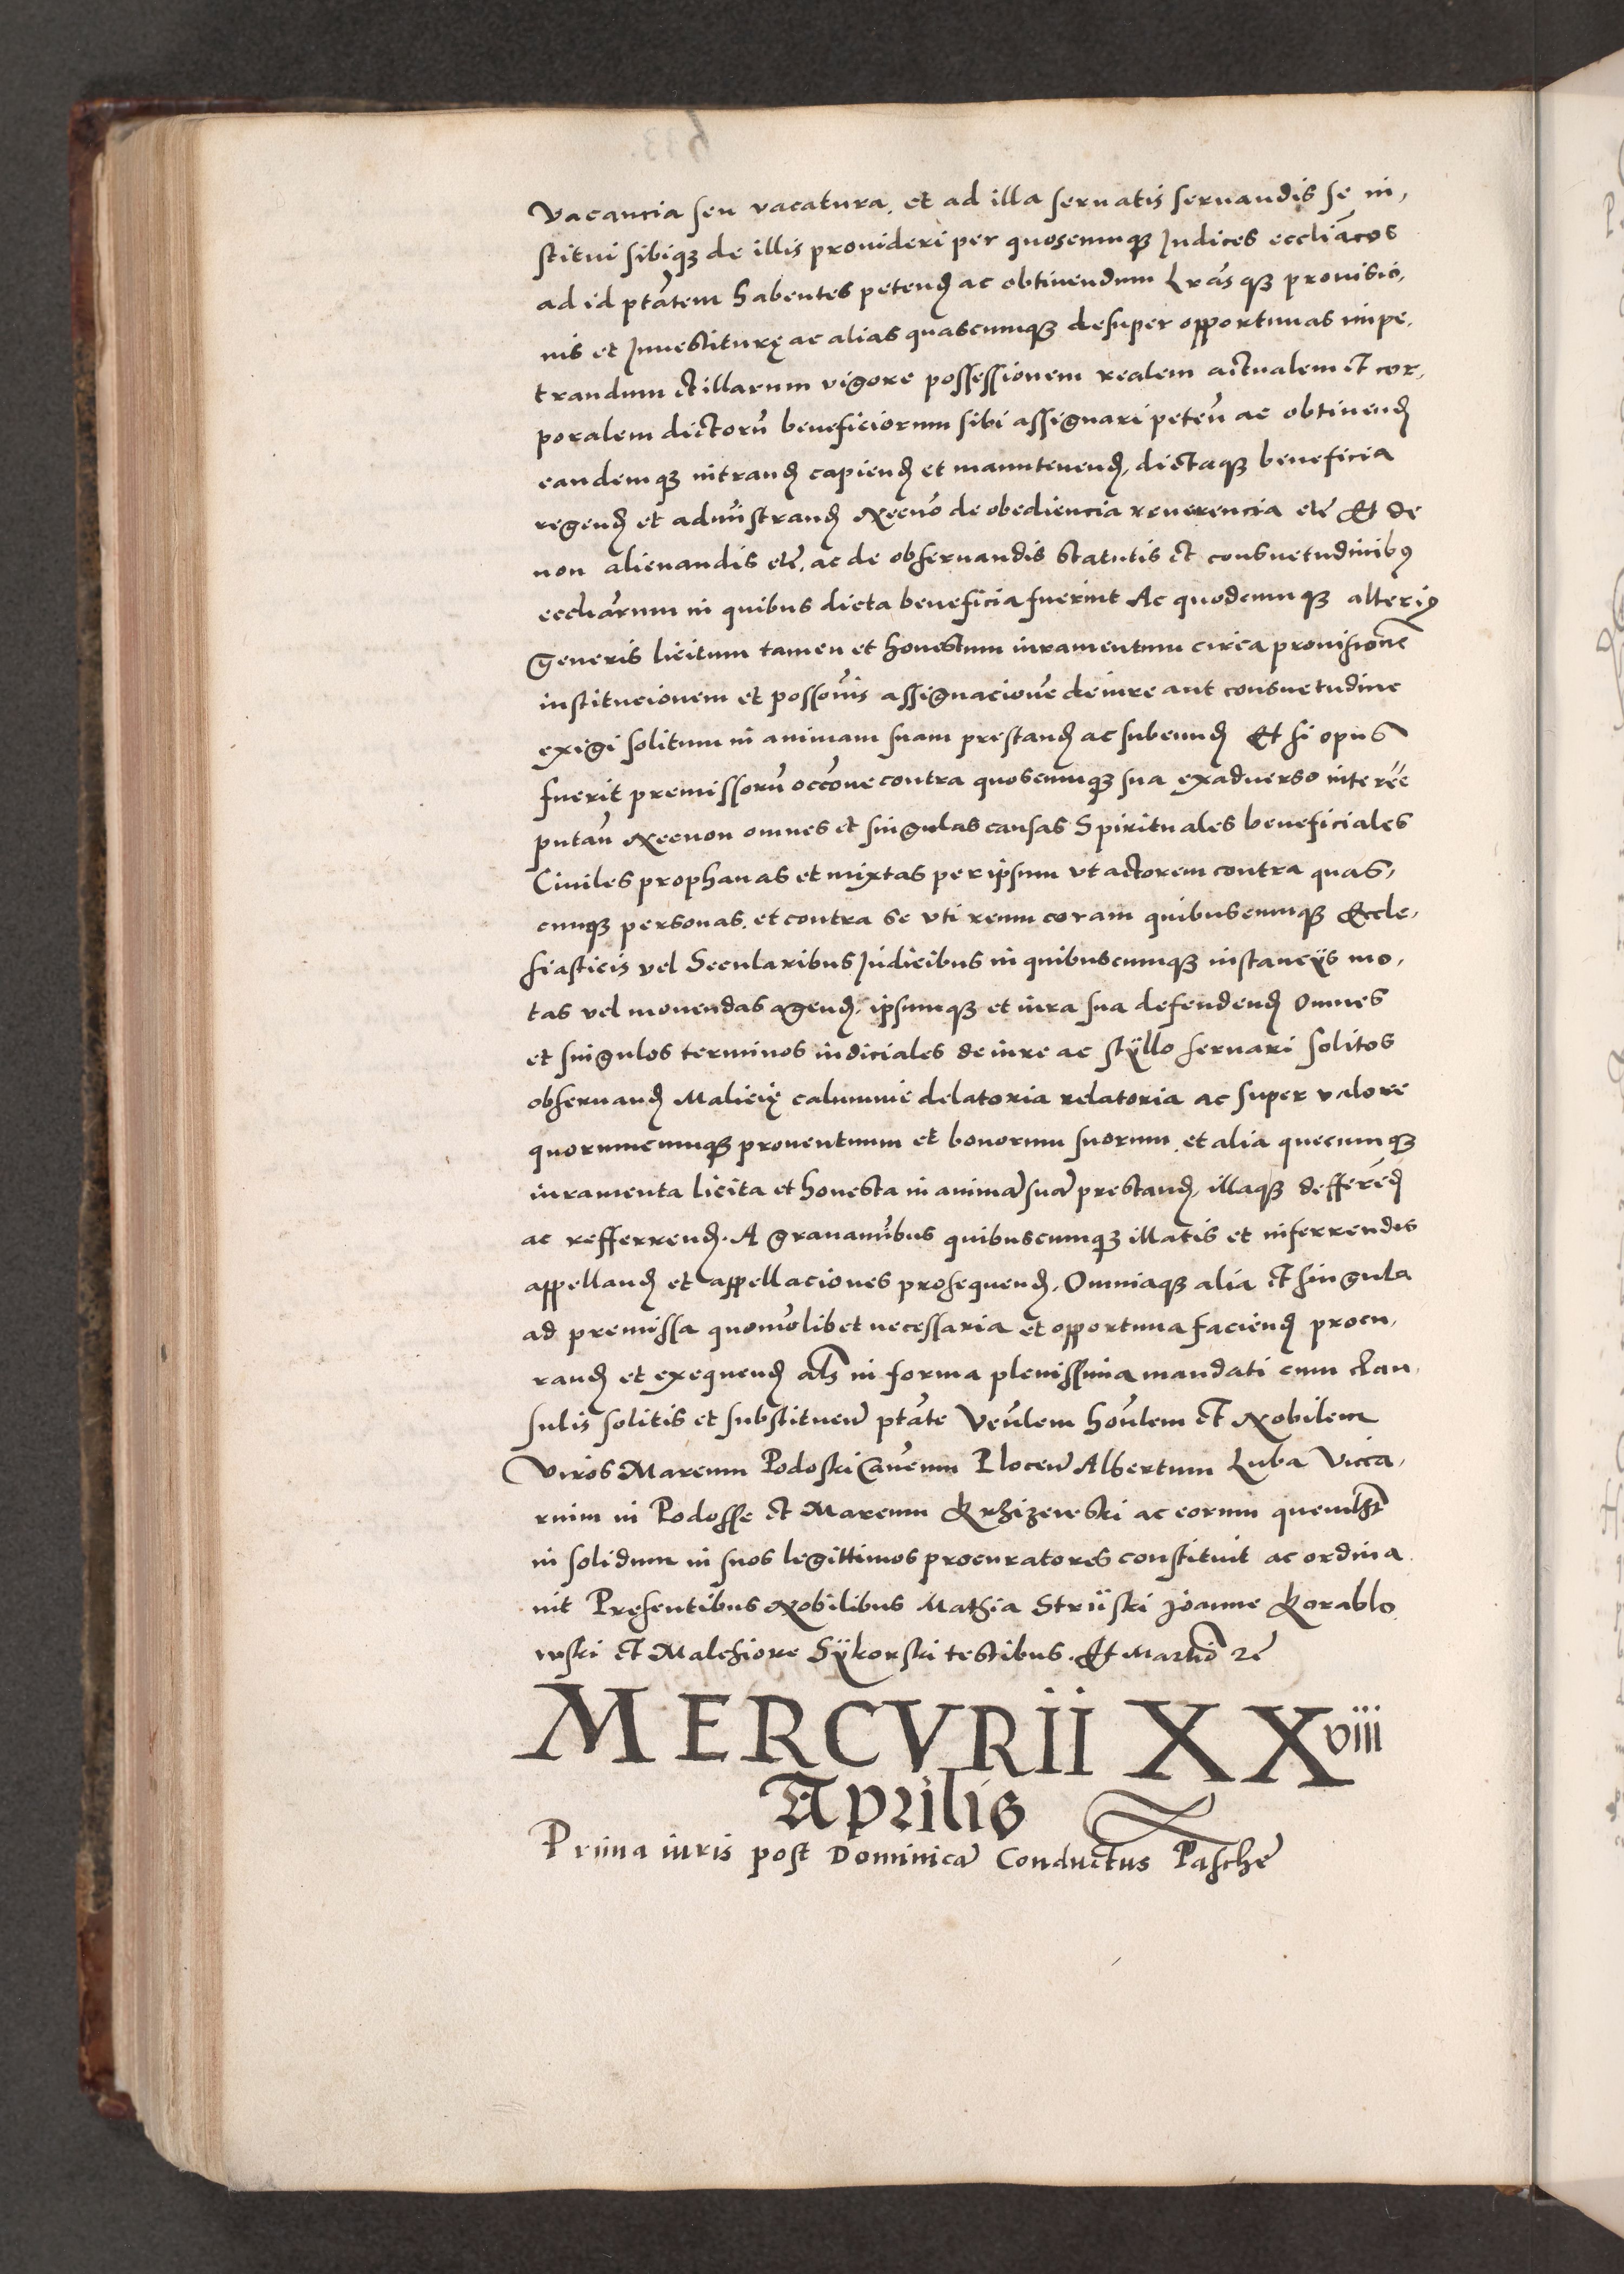 vacancia seu vacatura, et ad illa seruatis seruandis se in,
stitui sibiqꝫ de illis prouideri per quoscumqꝫ Judices eccliãcos
ad id ptãtem habentes petenꝭ ac obtinendum Lrãsqꝫ prouisio,
nis et Jnuestiturę ac alias quascumqꝫ desuper opportunas impe,
trandum et illarum vigore possessionem realem actualem et cor,
poralem dictorũ beneficiorum sibi assignari peteñ ac obtinenꝭ
eandemqꝫ intranꝭ capienꝭ et manutenenꝭ, dictaqꝫ beneficia
regenꝭ et adm̃istranꝭ Necnõ de obediencia reuerencia etc̃ Et de
non alienandis etc̃, ac de obseruandis statutis et consuetudinibꝰ
eccliãrum in quibus dicta beneficia fuerint Ac quodcumqꝫ alteriꝰ
generis licitum tamen et honestum iuramentum circa prouisionẽ
institucionem et possonĩs assignacionẽ de iure aut consuetudine
exigi solitum in animam suam prestanꝭ ac subeunꝭ Et si opus
fuerit premissorũ occõne contra quoscumqꝫ sua exaduerso interẽe
putañ Necnon omnes et singulas causas Spirituales beneficiales
Ciuiles prophanas et mixtas per ipsum vt actorem contra quas,
cumqꝫ personas, et contra se vti reum coram quibuscumqꝫ Eccle,
siasticis vel Secularibus Judicibus in quibuscumqꝫ instancijs mo,
tas vel mouendas agenꝭ, ipsumqꝫ et iura sua defendenꝭ Omnes
et singulos terminos iudiciales de iure ac stÿllo seruari solitos
obseruanꝭ Malicię calumnie delatoria relatoria ac super valore
quorumcumqꝫ prouentuum et bonorum suorum, et alia quecumqꝫ
iuramenta licita et honesta in animã suã prestanꝭ, illaqꝫ defferẽꝭ
ac refferrenꝭ. A grauamĩbus quibuscumqꝫ illatis et inferrendis
appellanꝭ et appellaciones prosequenꝭ, Omniaqꝫ alia et singula
ad premissa quomõlibet necessaria et opportuna facienꝭ procu,
ranꝭ et exequenꝭ als̃ in forma plenissima mandati cum clau,
sulis solitis et substitueñ ptãte Veñlem hoñlem et Nobilem
Viros Marcum Podoski Cañcum Ploceñ Albertum Luba Vicca,
rium in Podosse et Marcum Krzizewski ac eorum quemlꝫt
in solidum in suos legittimos procuratores constituit ac ordina
uit Presentibus Nobilibus Mathia Strÿski Joanne Korablo
wski et Malchiore Sÿkorski testibus. Et Martiõ rẽ
MERCVRII XXviii
Aprilis
Prima iuris post Dominicã Conductus Paschẽ